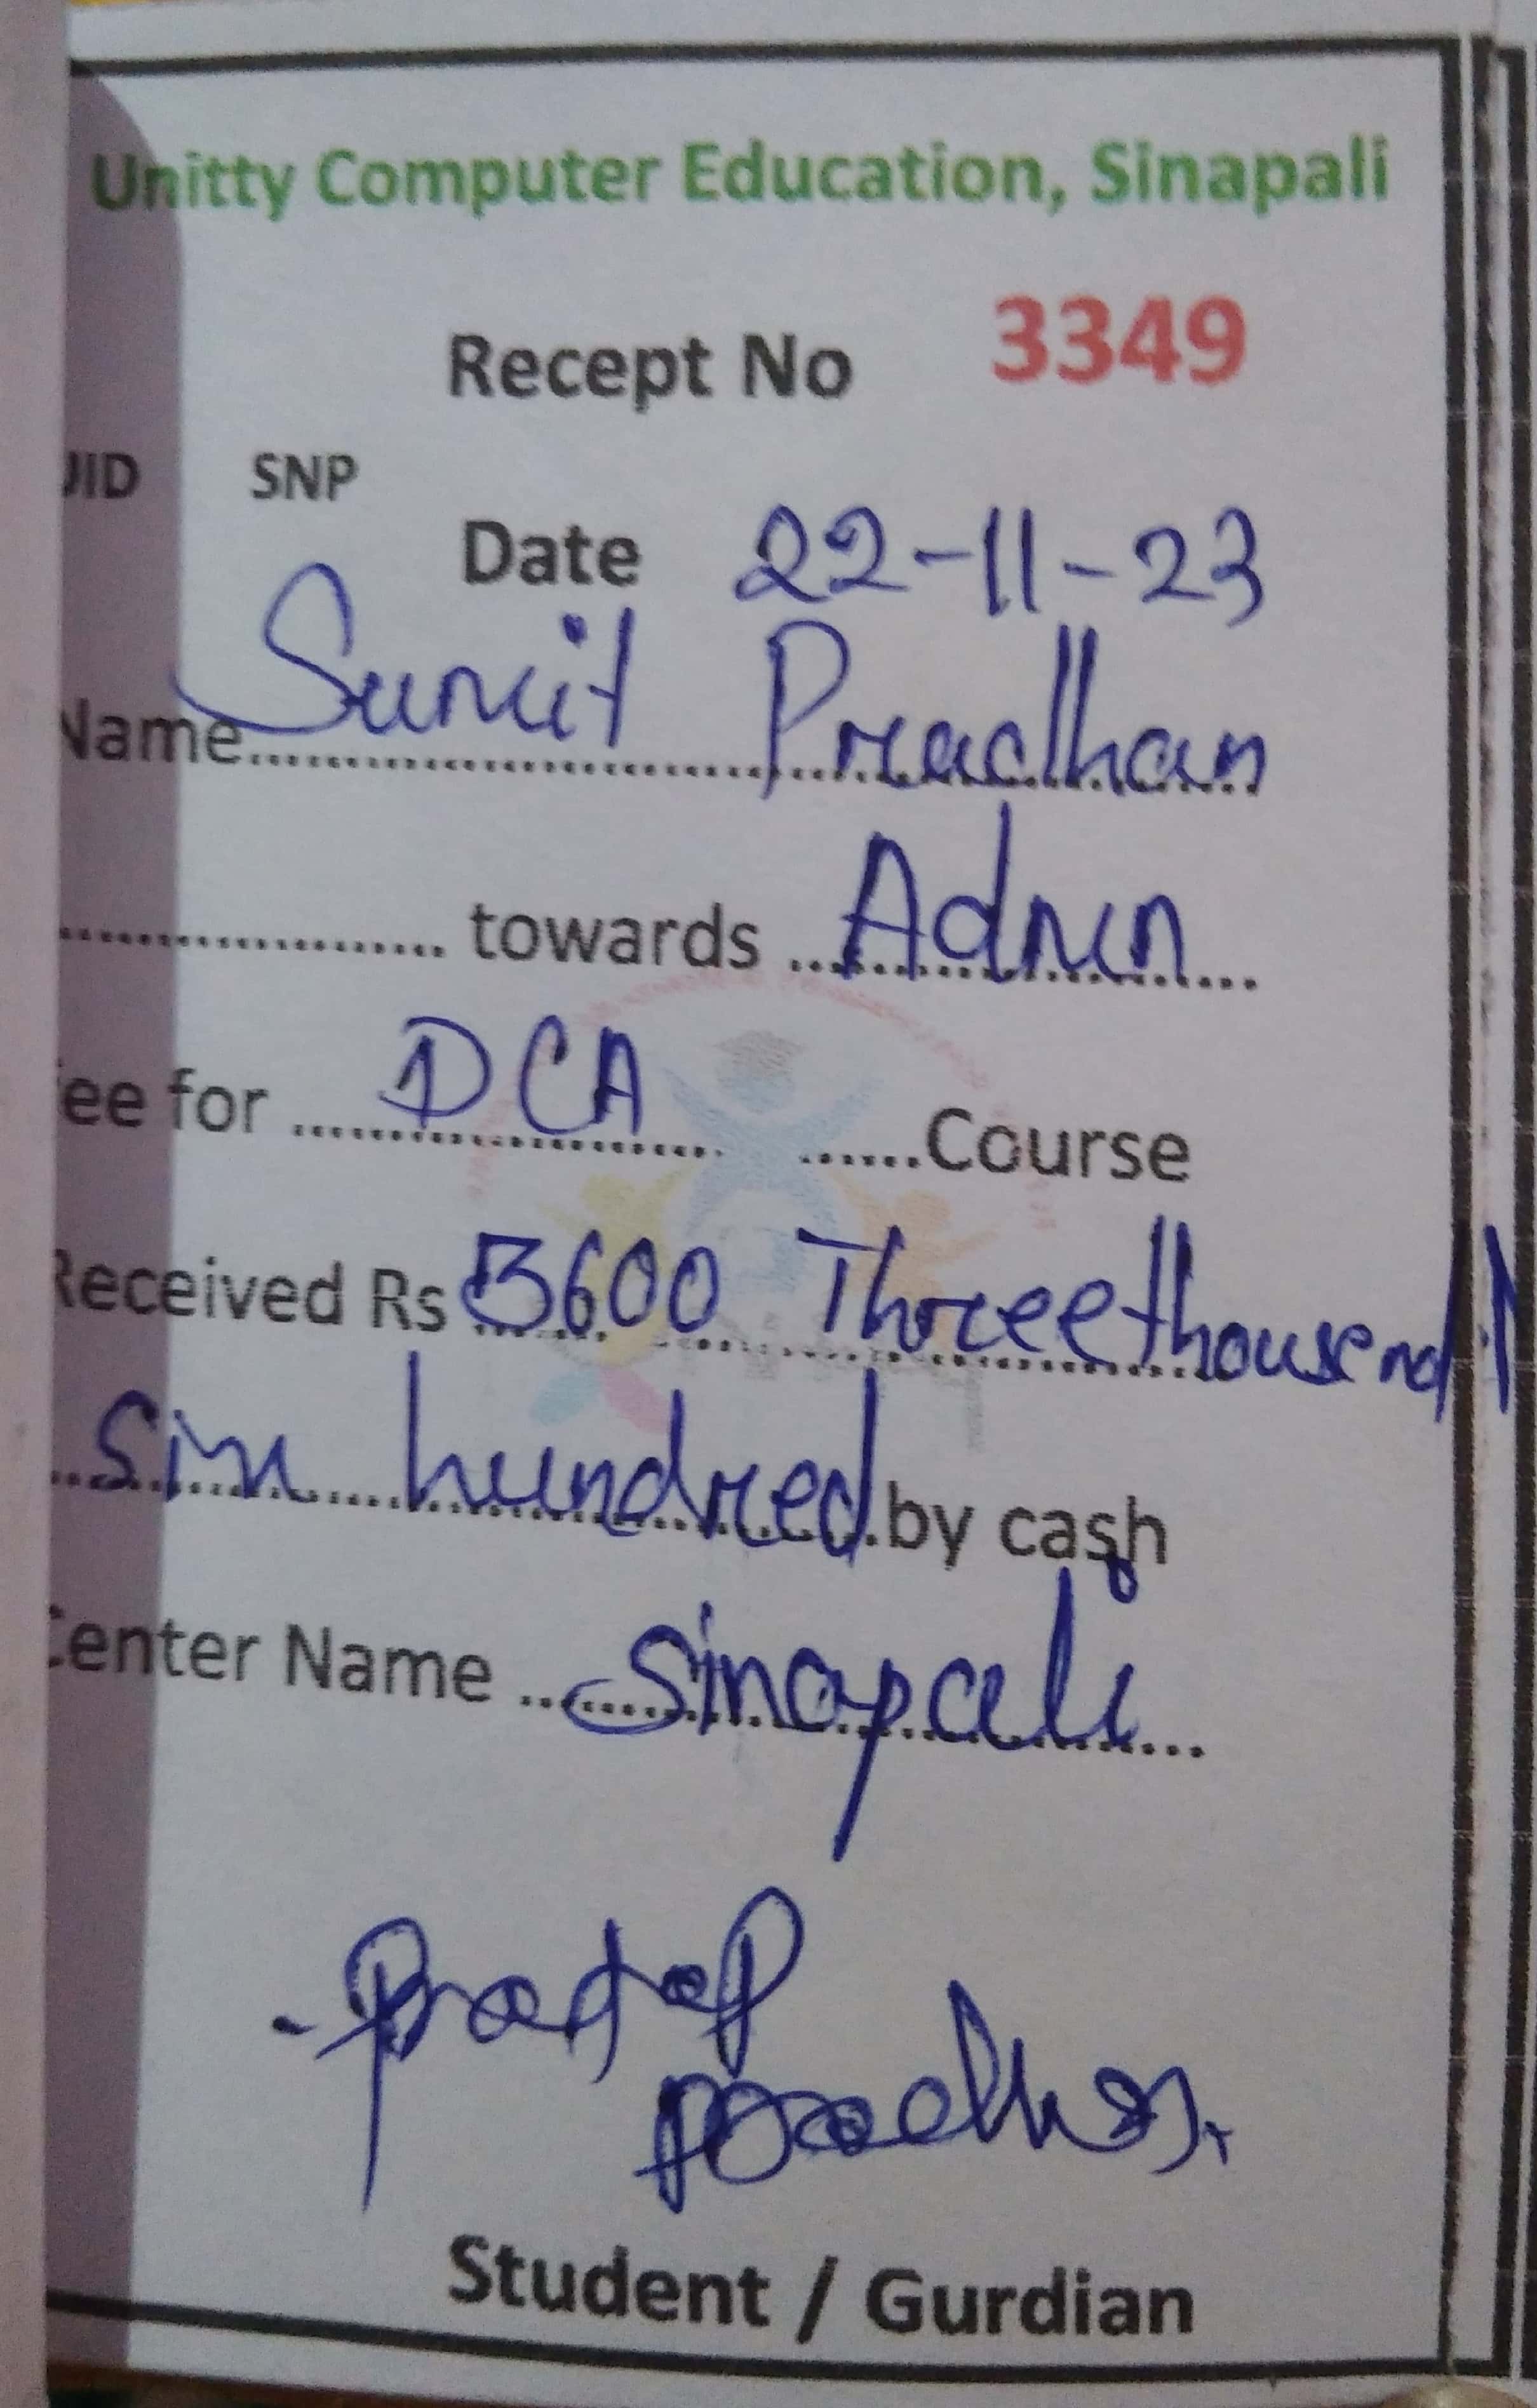 Unitty Computer Education, Sinapali
Recept No 3349
UID SNP
Date 22-11-23
Name Sumit Pradhan
.................... towards ... Admn ...
Fee for ... DCA ... ......Course
Received Rs 3600 Three thousand
Six hundred by cash
Center Name ... Sinapali ...
Pratap
Pradhan
Student / Gurdian